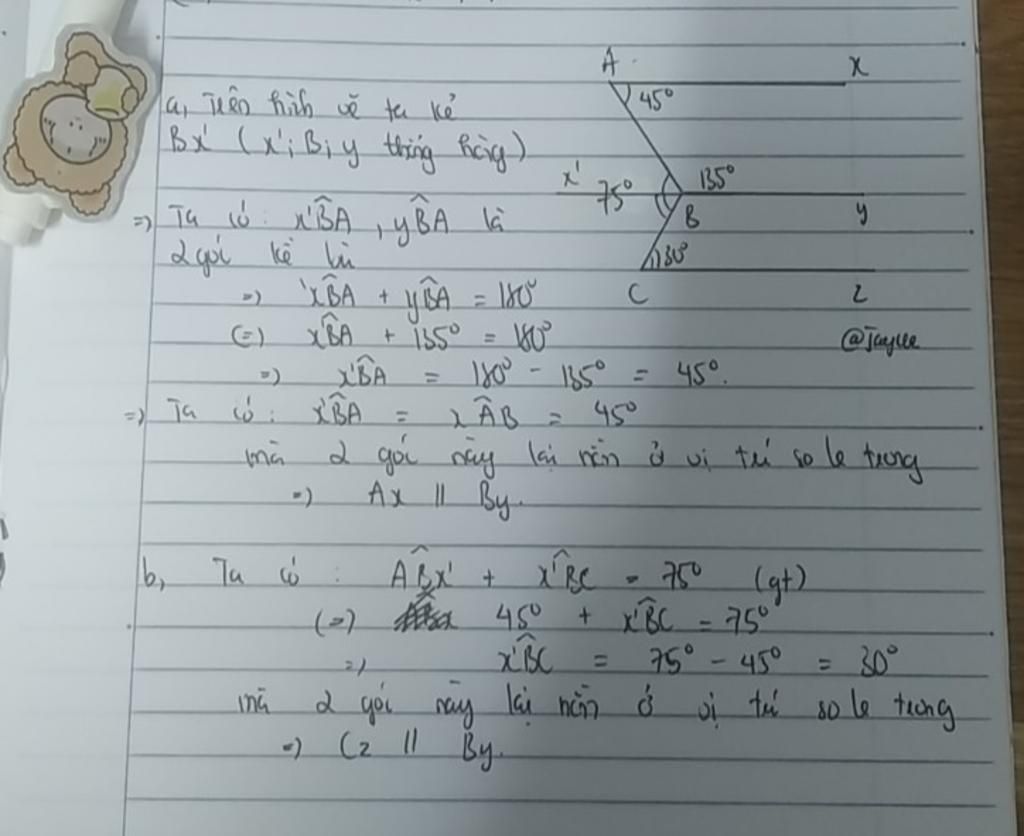 A
x
45°
a, Trên hình vẽ ta kẻ
Bx' (x'; B; y thẳng hàng)
x'
75°
135°
B
y
=) Ta có: x'B̂A, yB̂A là
2 góc kề bù
30°
C
z
=) 'xB̂A + yB̂A = 180°
(=) x'B̂A + 135° = 180°
@jayce
=) x'B̂A = 180° - 135° = 45°.
=) Ta có: x'B̂A = xÂB = 45°
mà 2 góc này lại nằm ở vị trí so le trong
=) Ax // By.
b, Ta có: AB̂x' + x'B̂C = 75° (gt)
(=) 45° + x'B̂C = 75°
=) x'B̂C = 75° - 45° = 30°
mà 2 góc này lại nằm ở vị trí so le trong
=) Cz // By.